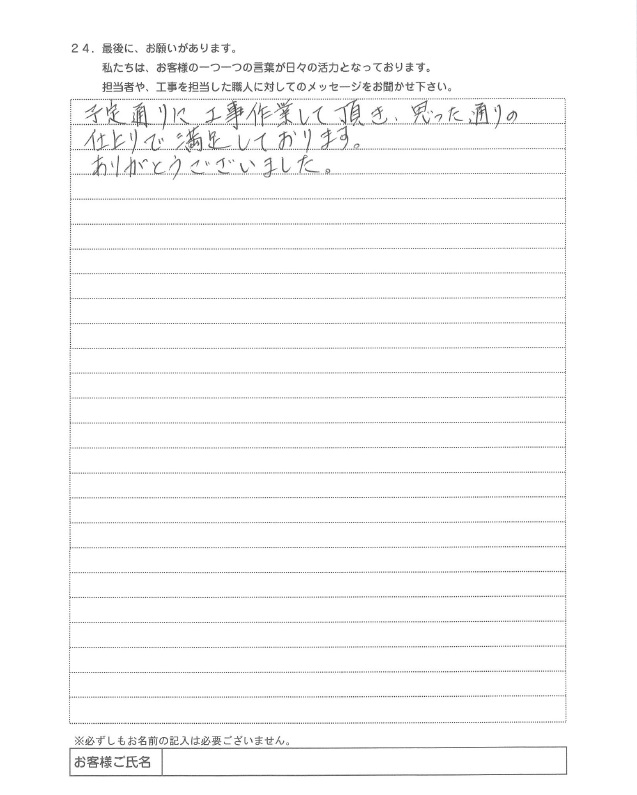 ２４．最後に、お願いがあります。
私たちは、お客様の一つ一つの言葉が日々の活力となっております。
担当者や、工事を担当した職人に対してのメッセージをお聞かせ下さい。
予定通りに工事作業して頂き、思った通りの
仕上りで満足しております。
ありがとうございました。
※必ずしもお名前の記入は必要ございません。
お客様ご氏名